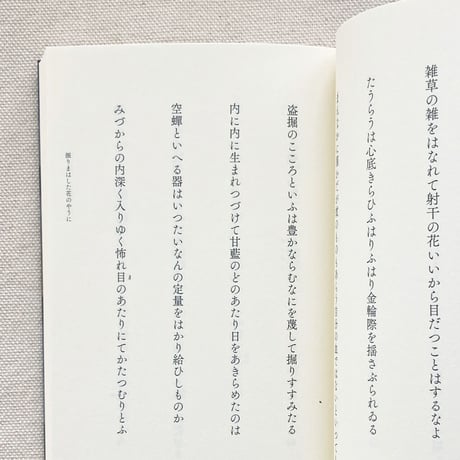 雑草の雑をはなれて射干の花いいから目だつことはするなよ
たうらうは心底きらひふはりふはり金輪際を揺さぶられゐる
盗掘のこころといふは豊かならむなにを蔑して掘りすすみたる
内に内に生まれつづけて甘藍のどのあたり日をあきらめたのは
空蟬といへる器はいつたいなんの定量をはかり給ひしものか
みづからの内深く入りゆく怖れ目のあたりにてかたつむりとふ
ま
振りまはした花のやうに